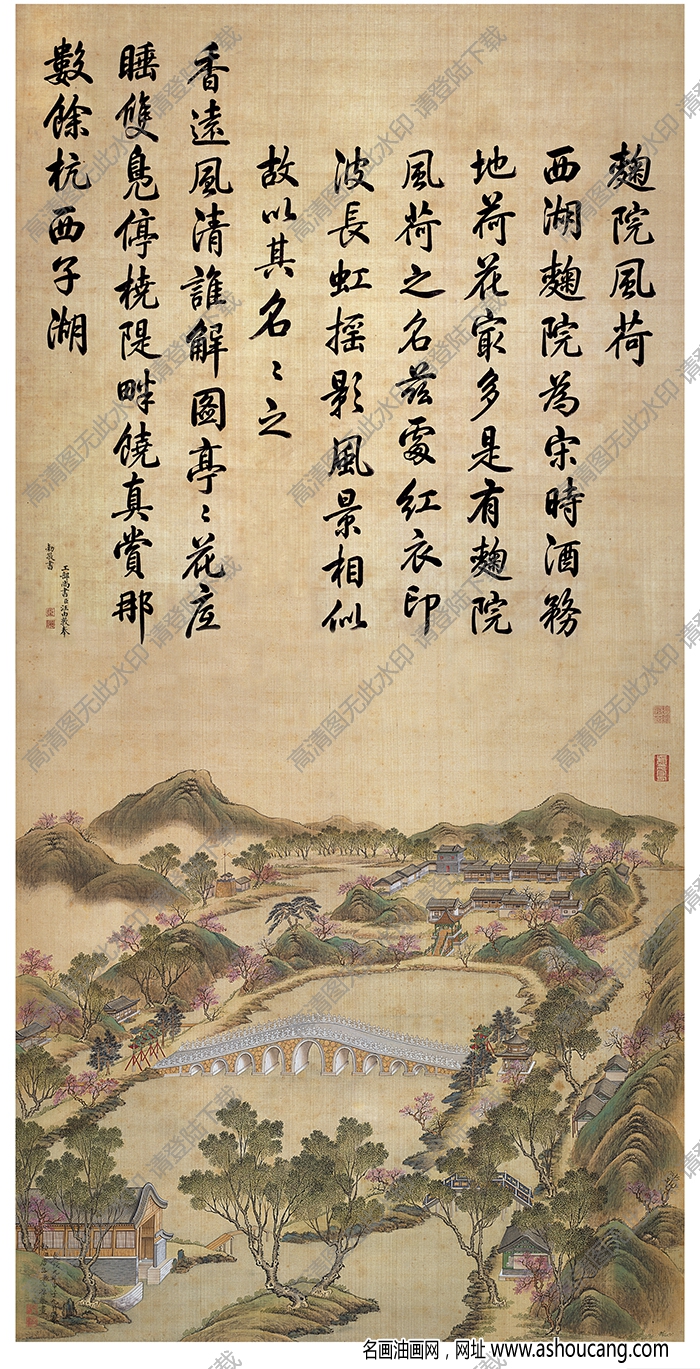 麴院風荷
西湖麴院為宋時酒務
地荷花冣多是有麴院
風荷之名茲處紅衣印
波長虹搖影風景相似
故以其名〻之
香遠風清誰解圖亭〻花底
睡雙鳧停橈隄畔饒真賞那
數餘杭西子湖
工部尚書臣汪由敦奉
勅敬書
高清图无此水印 请登陆下载
名画油画网，网址 www.ashoucang.com